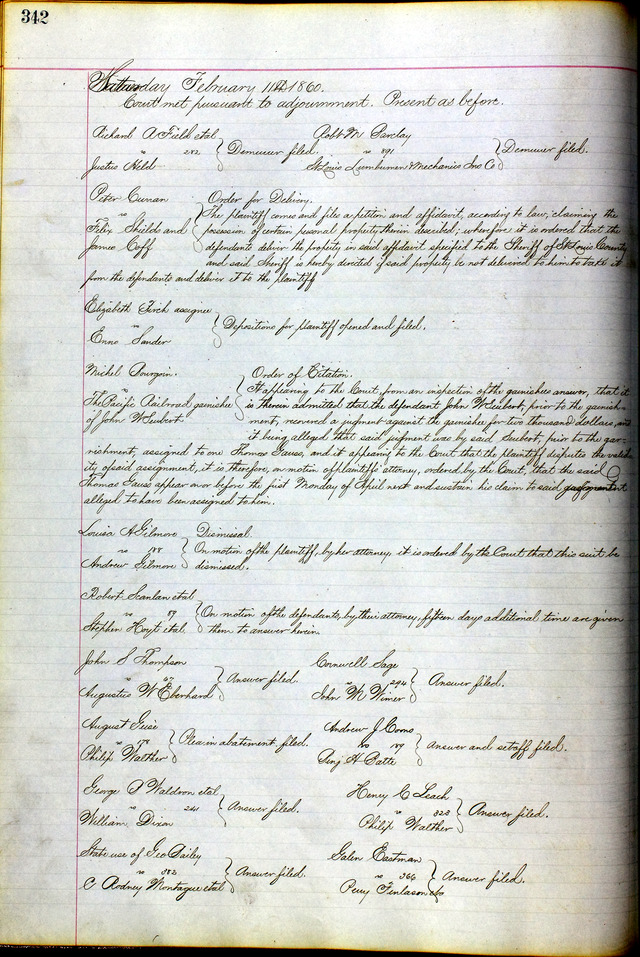 342
Saturday February 11th 1860.
Court met pursuant to adjournment. Present as before.
Richard A Field etal
vs 282 Demurrer filed.
Justus Held
Robt W Barclay
vs 891 Demurrer filed.
St Louis Lumbermen & Mechanics Ins Co
Peter Curran Order for Delivery.
vs The plaintiff comes and files a petition and affidavit, according to law, claiming the
Felix Shields and possession of certain personal property therein described; wherefore it is ordered that the
James Goff defendants deliver the property in said affidavit specified to the Sheriff of St Louis County
and said Sheriff is hereby directed if said property be not delivered to him to take it
from the defendants and deliver it to the plaintiff
Elizabeth Tirch assignee
vs Depositions for plaintiff opened and filed.
Enno Sander
Michel Bourgoin. Order of Citation.
vs It appearing to the Court from an inspection of the garnishees answer, that it
The Pacific Railroad garnishee is therein admitted that the defendant John W Seibert, prior to the garnish-
of John W Seibert ment, recovered a judgment against the garnishee for two thousand dollars, and
it being alleged that said judgment was by said Seibert, prior to the gar-
nishment, assigned to one Thomas Gauss, and it appearing to the Court that the plaintiff disputes the valid-
ity of said assignment, it is therefore, on motion of plaintiffs attorney, ordered by the Court that the said
Thomas Gauss appear on or before the first Monday of April next and sustain his claim to said judgment
alleged to have been assigned to him.
Louisa A Gilmore Dismissal.
vs On motion of the plaintiff, by her attorney, it is ordered by the Court that this suit be
Andrew Gilmore dismissed.
Robert Scanlan etal
vs 87 On motion of the defendants, by their attorney, fifteen days additional time are given
Stephen Hoyt etal them to answer herein.
John S Thompson
vs Answer filed.
Augustus W Eberhard
Cornwell Sage
vs 294 Answer filed.
John M Wimer
August Guise
vs Plea in abatement filed.
Philip Walther
Andrew J Coons
vs 189 Answer and setoff filed.
Benj H Batte
George P Waldron etal
vs 241 Answer filed.
William Dixon
Henry C Leach
vs 323 Answer filed.
Philip Walther
State use of Geo Bailey
vs 383 Answer filed.
C Rodney Montague etal
Galen Eastman
vs 366 Answer filed.
Percy Finlason etal